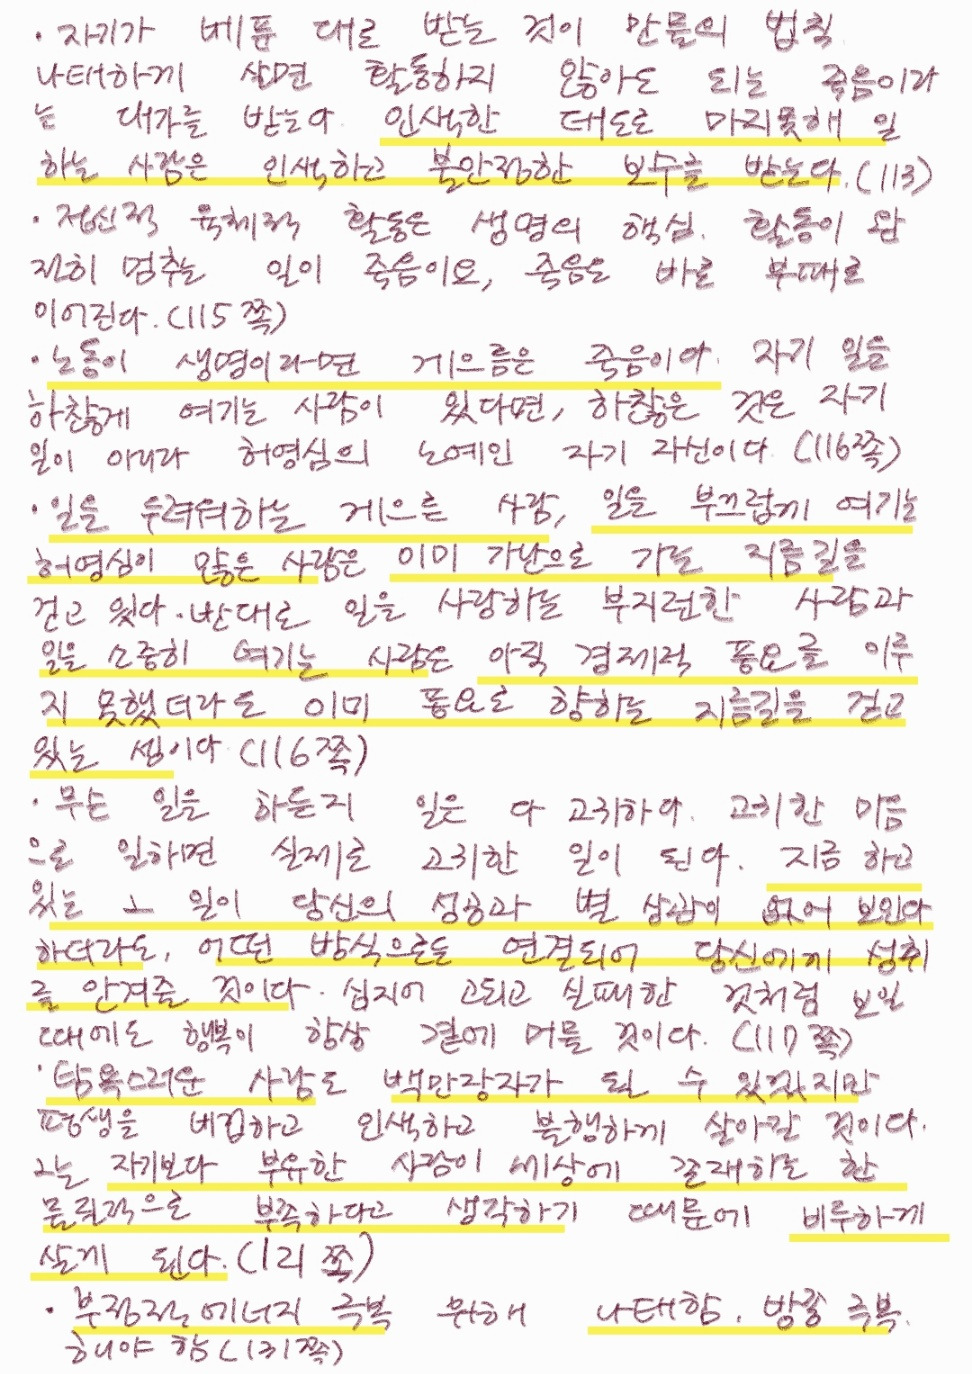 · 자기가 베푼 대로 받는 것이 만물의 법칙.
나태하게 살면 활동하지 않아도 되는 죽음이라
는 대가를 받는다. 인색한 태도로 마지못해 일
하는 사람은 인색하고 불안정한 보수를 받는다.(113)
· 정신적 육체적 활동은 생명의 핵심. 활동이 완
전히 멈추는 일이 죽음이요, 죽음은 바로 부패로
이어진다.(115쪽)
· 노동이 생명이라면 게으름은 죽음이다. 자기 일을
하찮게 여기는 사람이 있다면, 하찮은 것은 자기
일이 아니라 허영심의 노예인 자기 자신이다. (116쪽)
· 일을 두려워하는 게으른 사람, 일을 부끄럽게 여기는
허영심이 많은 사람은 이미 가난으로 가는 지름길을
걷고 있다. 반대로 일을 사랑하는 부지런한 사람과
일을 소중히 여기는 사람은 아직 경제적 풍요를 이루
지 못했더라도 이미 풍요로 향하는 지름길을 걷고
있는 셈이다. (116쪽)
· 무슨 일을 하든지 일은 다 고귀하다. 고귀한 마음
으로 일하면 실제로 고귀한 일이 된다. 지금 하고
있는 그 일이 당신의 성공과 별 상관이 없어 보인다
하더라도, 어떤 방식으로든 연결되어 당신에게 성취
를 안겨줄 것이다. 심지어 고되고 실패한 것처럼 보일
때에도 행복이 항상 곁에 머물 것이다. (117쪽)
· 탐욕스러운 사람도 백만장자가 될 수 있겠지만
평생을 버겁하고 인색하고 불행하게 살아갈 것이다.
그는 자기보다 부유한 사람이 세상에 존재하는 한
물질적으로 부족하다고 생각하기 때문에 비루하게
살게 된다. (121쪽)
· 부정적 에너지 극복 위해 나태함. 방종 극복.
해야 함 (131쪽)